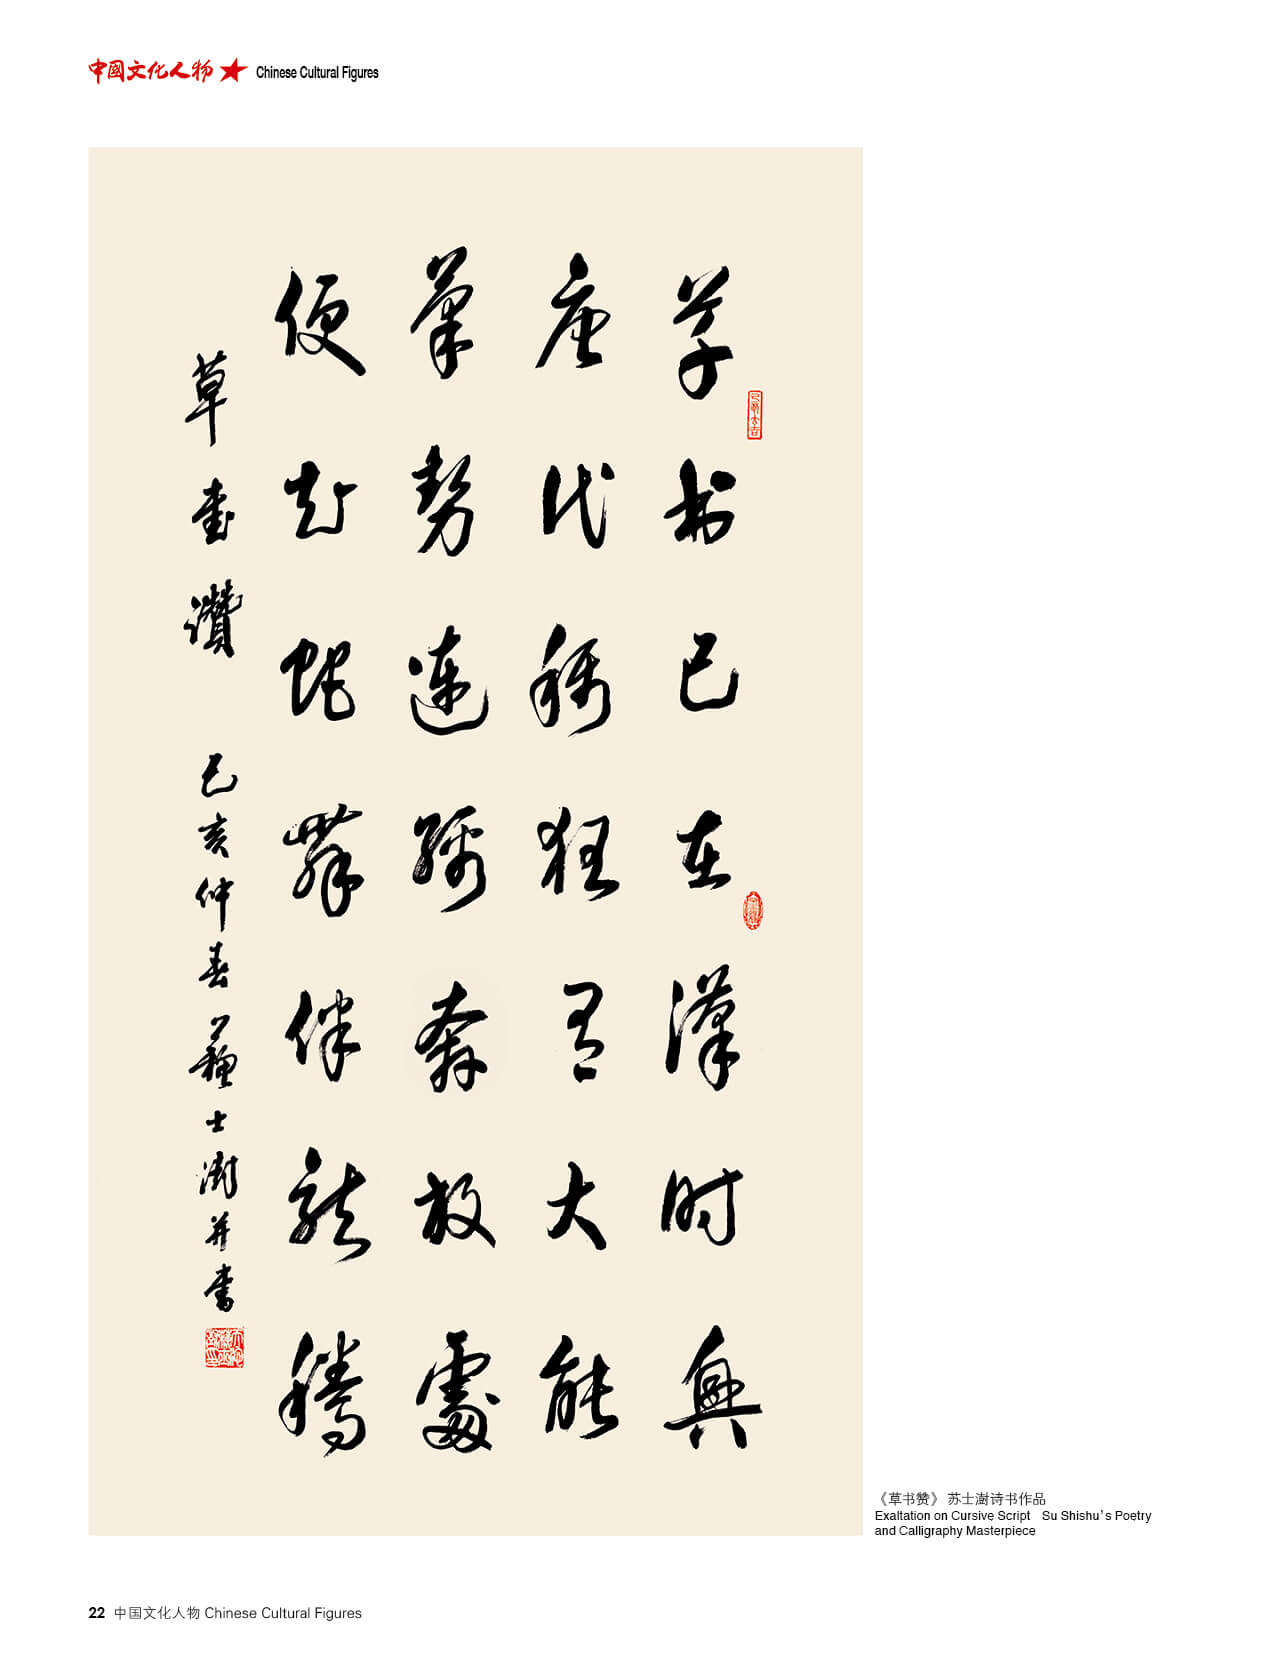 中國文化人物 Chinese Cultural Figures
草书已在漢时興
唐代稱狂有大能
筆勢連綿奔放處
便蛇舞伴龍騰
草書讚 己亥仲春蘇士澍并書
己亥大吉
《草书赞》 苏士澍诗书作品
Exaltation on Cursive Script Su Shishu's Poetry
and Calligraphy Masterpiece
22 中国文化人物 Chinese Cultural Figures